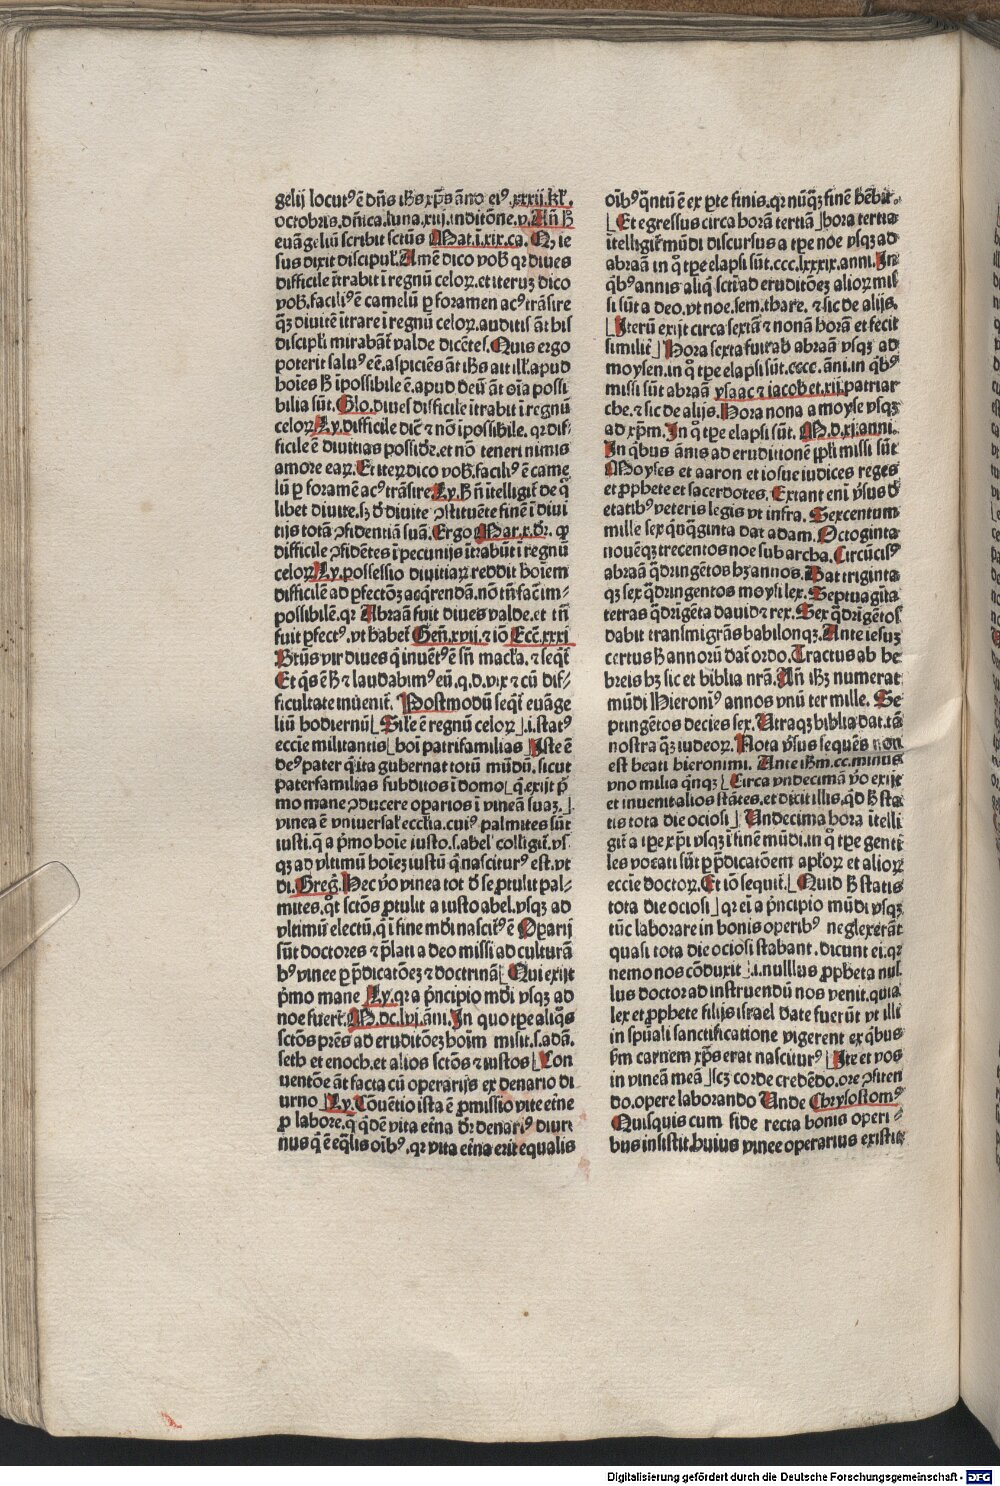 gelij locutꝰ ē dn̄s ih̄s xp̄s āno eiꝰ xxxij. kl̄.
octobris. dn̄ica. luna. xiij. inditōne. v. An̄ h̄
euāgeliū scribit sctūs Mat. ī. xix. ca. Q, ie
sus dixit discipul̄. Amē dico vob̄ qr diues
difficile ītrabit ī regnū celoꝝ. et iteruꝫ dico
vob̄. faciliꝰ ē camelū ꝑ foramen acꝰ trāsire
qꝫ diuitē ītrare ī regnū celoꝝ. auditis āt his
discipli mirabāt valde dicētes. Quis ergo
poterit saluꝰ eē. aspiciēs āt ih̄s ait ill̄. apud
hoīes h̄ īpossibile ē. apud deū āt oīa possi
bilia sūt. Glo. diues difficile ītrabit ī regnū
celoꝝ Ly. difficile dic̄ ⁊ nō īpossibile. qr dif⸗
ficile ē diuitias possidēr. et nō teneri nimis
amore eaꝝ. Et iteꝝ dico vob̄. faciliꝰ ē came
lū ꝑ foramē acꝰ trāsire. Ly. h̄ n̄ ītelligit̄ de q̄
libet diuite. sꝫ d̄ diuite ꝯstituēte finē ī diui
tijs totā ꝯfidentiā suā. Ergo Mar. x. dr̄. qꝫ
difficile ꝯfidētes ī pecunijs ītrabūt ī regnū
celoꝝ Ly. possessio diuitiaꝝ reddit hoīem
difficilē ad ꝑfectōꝫ acq̄rendā. nō tn̄ facit im⸗
possibilē. qr Abraā fuit diues valde. et tn̄
fuit ꝑfectꝰ. vt habet̄ Gen̄. xvij. ⁊ iō Ecc̄. xxxi
Btūs vir diues q̄ inuētꝰ ē sn̄ macl̄a. ⁊ seqt̄
Et q̄s ē h̄ ⁊ laudabimꝰ eū. q. d. vix ⁊ cū dif⸗
ficultate inuenit̄. Postmodū seqt̄ euāge
liū hodiernū [Sil̄e ē regnū celoꝝ] .i. statꝰ
eccīe militantis [hoī patrifamilias] Iste ē
deꝰ pater q̄ ita gubernat totū mūdū. sicut
paterfamilias subditos ī domo [q̄ exijt p̄
mo mane ꝯducere oparios ī vineā suaꝫ.]
vinea ē vniuersal̄ eccl̄ia. cuiꝰ palmites sūt
iusti. q̄ a p̄mo hoīe iusto. s. abel colligit̄. vs̄
qꝫ ad vltimū hoīeꝫ iustū q̄ nasciturꝰ est. vt
di. Greḡ. Hec v̄o vinea tot d̄ se ꝓtulit pal⸗
mites. q̄t sctōs ꝓtulit a iusto abel. vsqꝫ ad
vltimū electū. q̄ ī fine mūdi nascit̄ꝰ ē Oparij
sūt doctores ⁊ p̄lati a deo missi ad culturā
hꝰ vinee ꝑ p̄dicatōeꝫ ⁊ doctrinā [Qui exijt
p̄mo mane] Ly. qr a p̄ncipio mūdi vsqꝫ ad
noe fuer̄t. M. dc. lvi. āni. In quo tꝑe aliq̄s
sctōs prēs ad eruditōeꝫ hoīm misit. s. adā.
seth et enoch. et alios sctōs ⁊ iustos [Con
uentōe āt facta cū operarijs ex denario di
urno] Ly. Cōuētio ista ē ꝓmissio vite eterne
ꝓ labore. q̄ q̄dē vita etn̄a dr̄ denariꝰ diur⸗
nus q̄ ē eq̄lis oībꝰ. qr vita etn̄a erit equalis
oībꝰ q̄ntū ē ex ꝑte finis. qr nūq̄ꝫ finē hēbit.
[Et egressus circa horā tertiā] hora tertia
ītelligit̄ mūdi discursus a tꝑe noe vsqꝫ ad
abraā in q̄ tꝑe elapsi sūt. ccc. lxxxix. anni. In
q̄bꝰ annis aliq̄ sctī ad eruditōeꝫ alioꝝ mis
si sūt a deo. vt noe. sem. thare. ⁊ sic de alijs.
[Iterū exijt circa sextā ⁊ nonā horā et fecit
similit̄] Hora sexta fuit ab abraā vsqꝫ ad
moysen. in q̄ tꝑe elapsi sūt. cccc. āni. in q̄bꝰ
missi sūt abraā ysaac ⁊ iacob et. xij. patriar
che. ⁊ sic de alijs. Hora nona a moyse vsqꝫ
ad xp̄m. In q̄ tꝑe elapsi sūt. M. d. xi. anni.
In q̄bus ānis ad eruditionē ppl̄i missi sūt
Moyses et aaron et iosue iudices reges
et ꝓphete et sacerdotes. Extant eni v̄sus d̄
etatibꝰ veteris legis vt infra. Sexcentum
mille sex q̄nq̄ginta dat adam. Octoginta
nouēqꝫ trecentos noe sub archa. Circūcisꝰ
abraā q̄dringētos hꝫ annos. Dat triginta
qꝫ sex q̄dringentos moysi lex. Septuagīta
tetras q̄drigēta dauid ⁊ rex. Sex q̄drigētos
dabit transmigrās babilonqꝫ. Ante iesuꝫ
certus h̄ annorū dat̄ ordo. Tractus ab he
breis hꝫ sic et biblia nrā. An̄ ih̄ꝫ numerat
mūdi Hieronīꝰ annos vnū ter mille. Se
ptingētos decies sex. Utraqꝫ biblia dat. tā
nostra q̄ꝫ iudeoꝝ. Nota v̄sus sequēs non
est beati hieronimi. Ante ih̄m. cc. minus
vno milia q̄nqꝫ [Circa vndecimā v̄o exijt
et inuenit alios stātes. et dicit illis. q̄d h̄ sta
tis tota die ociosi] Undecima hora ītelli
git̄ a tꝑe xp̄i vsqꝫ ī finē mūdi. in q̄ tꝑe genti
les vocati sūt ꝑ p̄dicatōem apl̄oꝝ et alioꝝ
eccīe doctoꝝ. Et iō sequit̄. [Quid h̄ statis
tota die ociosi] qr ei a p̄ncipio mūdi vsqꝫ
tūc laborare in bonis operibꝰ neglexerāt
quasi tota die ociosi stabant. dicunt ei. qr
nemo nos cōduxit .i. nullus ꝓpheta nul
lus doctor ad instruendū nos venit. quia
lex et ꝓphete filijs israel date fuerūt vt illi
in spūali sanctificatione vigerent ex q̄bus
ẜm carnem xp̄s erat nasciturꝰ [Ite et vos
in vineā meā] scꝫ corde credēdo. ore ꝯfiten
do. opere laborando Unde Chrysostomꝰ
Quisquis cum fide recta bonis operi⸗
bus insistit. huius vinee operarius existit
Digitalisierung gefördert durch die Deutsche Forschungsgemeinschaft - DFG